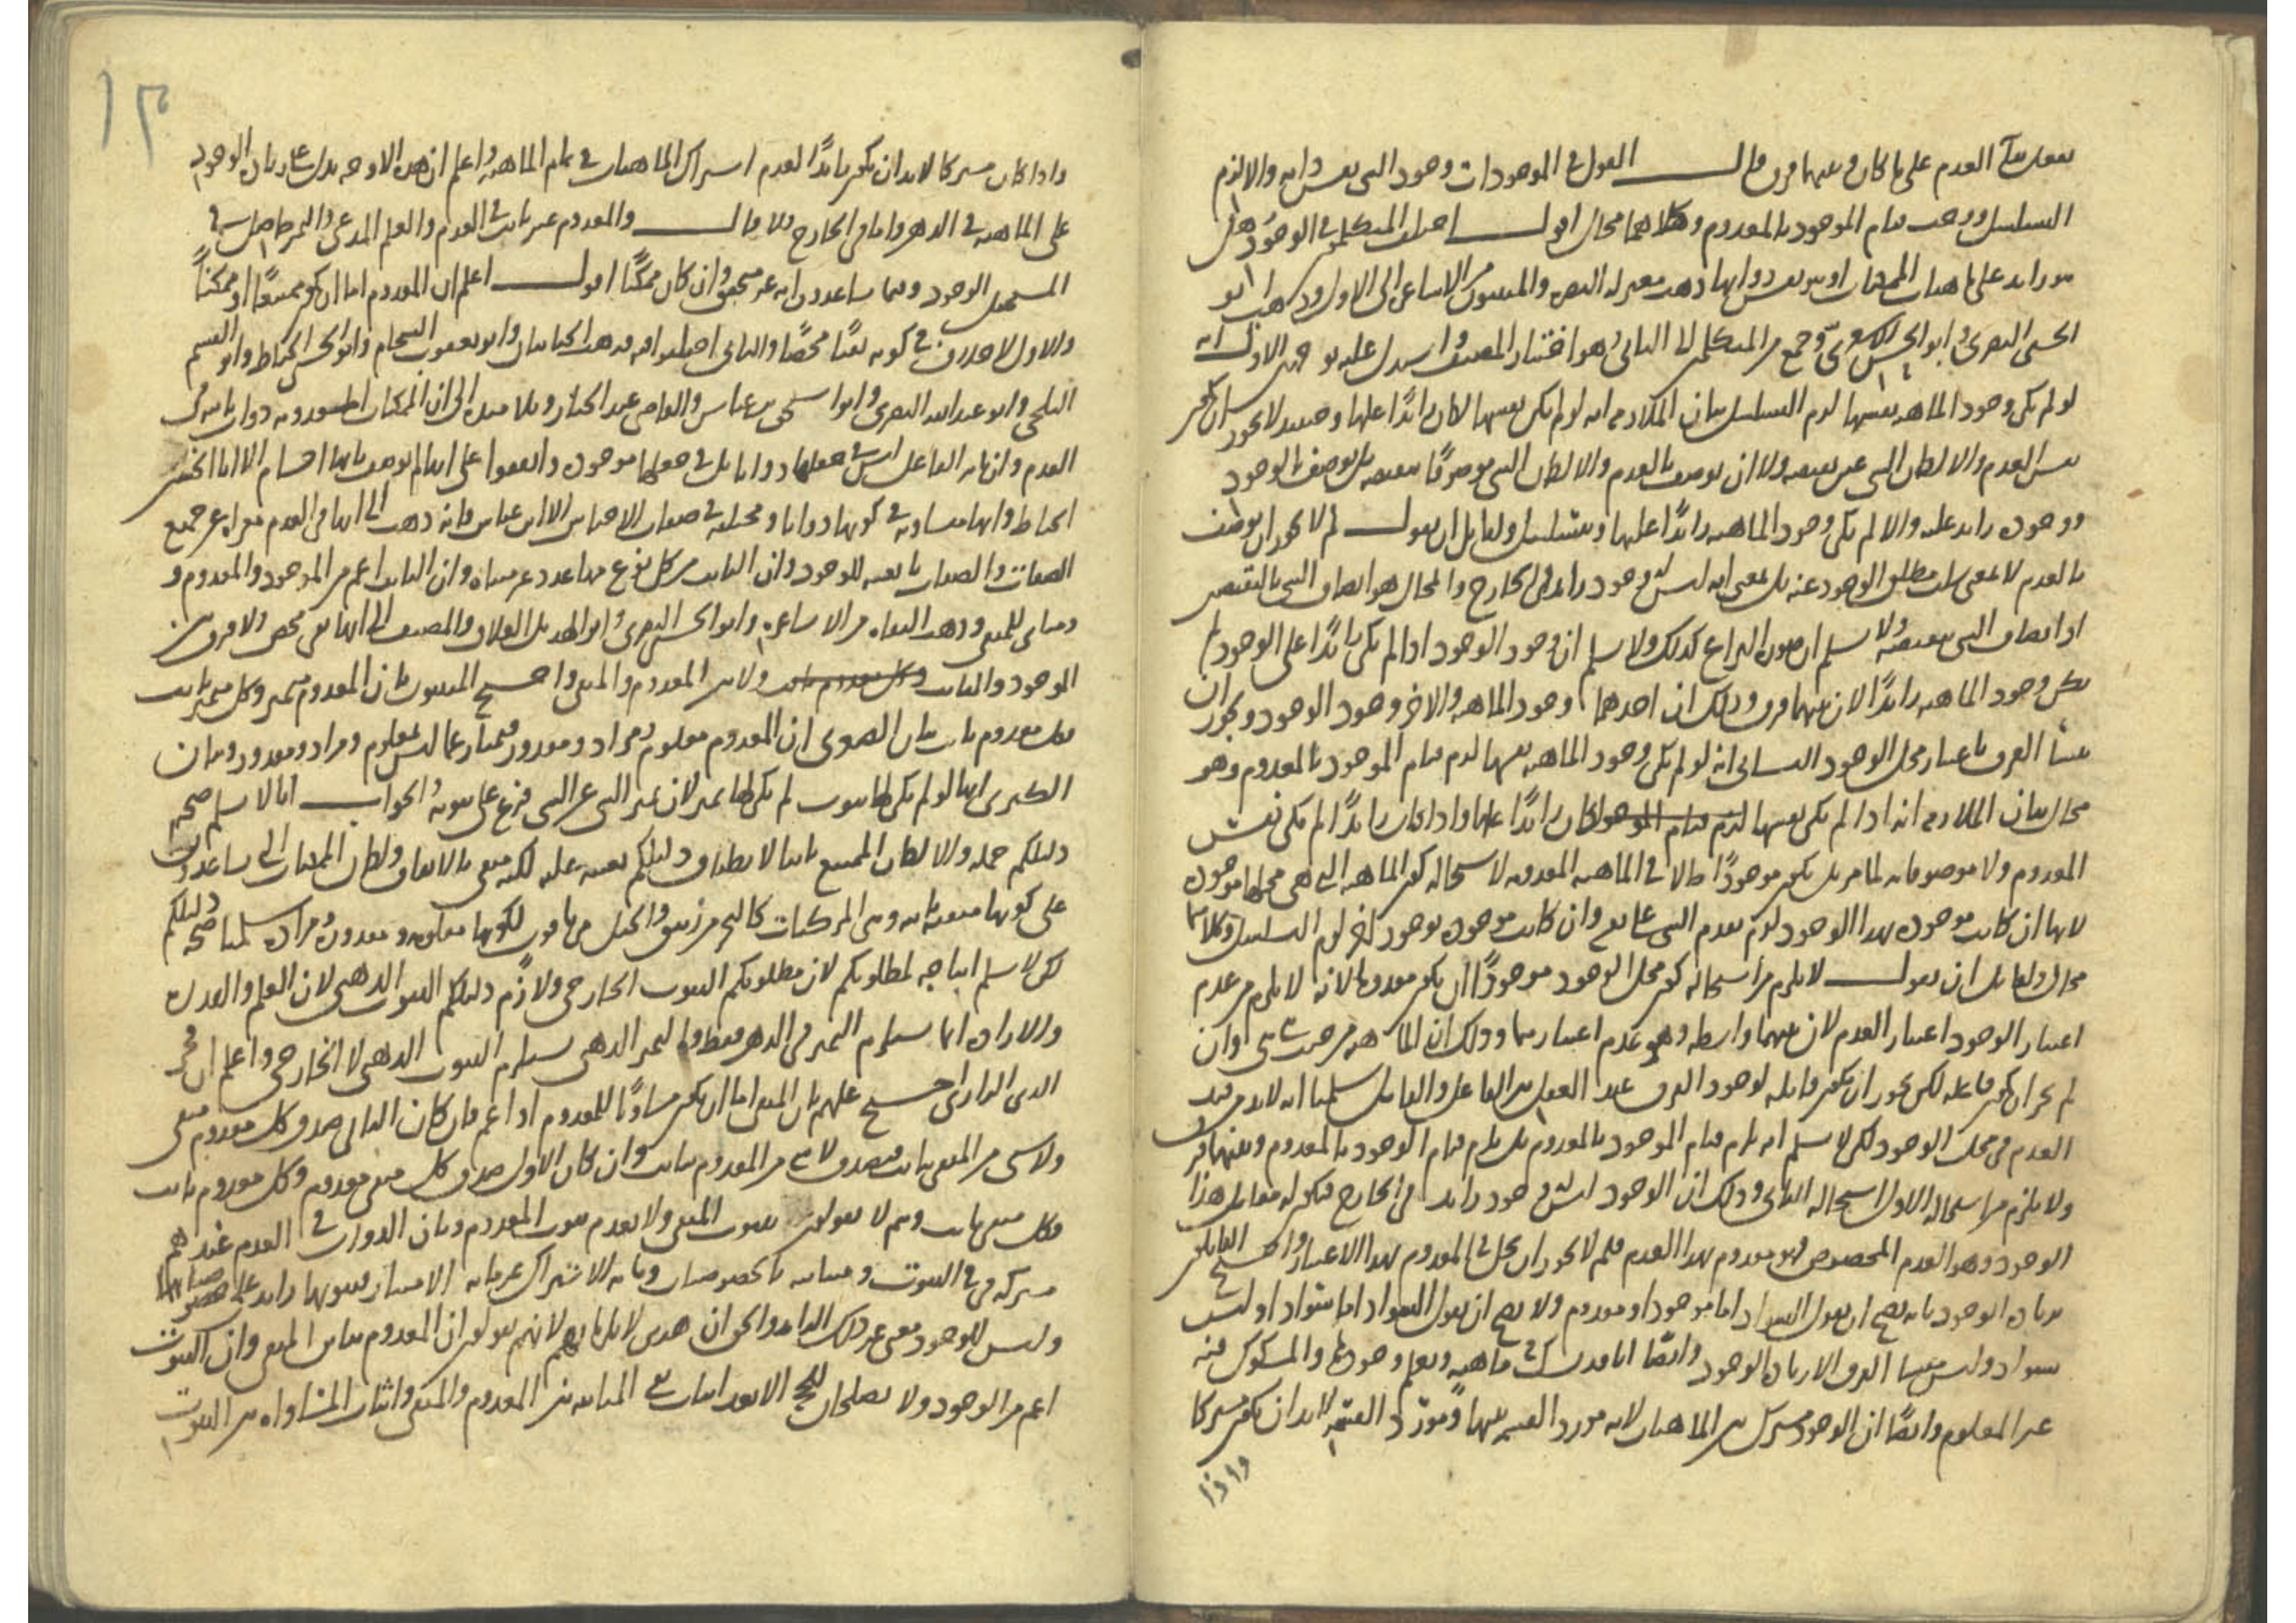 العدم على ما كان وبينهما فرق قال القول في الموجودات وجود الشي نفس ذاته والا لزم
التسلسل ووجب قيام الموجود بالمعدوم وكلاهما محال اقول اختلف المتكلمون في الوجود هل
هو زايد على ماهيات الممكنات او هو نفس ذواتها ذهب معتزلة البصرة والمثبتون من الاشاعرة الى الاول وذهب ابو
الحسين البصري وابو الحسن الاشعري وجمع من المتكلمين الى الثاني وهو اختيار المصنف واستدل عليه بوجهين الاول انه
لو لم يكن وجود الماهية نفسها لزم التسلسل بيان الملازمة انه لو لم يكن نفسها لكان زائدًا عليها وحينئذ لا يجوز ان يكون
نفس العدم والا لكان الشي عين نقيضه ولا ان يوصف بالعدم والا لكان الشي موصوفًا بنقيضه بل يوصف بالوجود
ووجوده زايد عليه والا لم يكن وجود الماهية زائدًا عليها ويتسلسل ولقايل ان يقول لم لا يجوز ان يوصف
بالعدم لا بمعنى سلب مطلق الوجود عنه بل بمعنى انه ليس له وجود زايد في الخارج والمحال هو اتصاف الشي بالنقيض
اذا اتصاف الشي بنقيضه ولا نسلم ان صورة النزاع كذلك ولا نسلم ان وجود الوجود اذا لم يكن زائدًا على الوجود لم
يكن وجود الماهية زائدًا لان بينهما فرق وذلك ان احدهما وجود الماهية والاخر وجود الوجود ويجوز ان
ينشأ الفرق باعتبار محل الوجود الثاني انه لو لم يكن وجود الماهية نفسها لزم قيام الموجود بالمعدوم وهو
محال بيان الملازمة انه اذا لم يكن نفسها لزم قيام الموجود لكان زائدًا عليها واذا كان زائدًا لم يكن نفس
المعدوم ولا موصوفا به لما مر بل يكون موجودًا حالا في الماهية المعدومة لاستحالة كون الماهية التي هي محلها موجودة
لانها ان كانت موجودة بهذا الوجود لزم تقدم الشي على نفسه وان كانت موجودة بوجود اخر لزم التسلسل وكلاهما
محال ولقايل ان يقول لا يلزم من استحالة كون محل الوجود موجودًا ان يكون معدوما لانه لا يلزم من عدم
اعتبار الوجود اعتبار العدم لان بينهما واسطة وهو عدم اعتبارهما وذلك ان الماهية من حيث هي هي وان
لم يجز ان تكون فاعلة لكن يجوز ان تكون قابلة لوجود الفرق عند العقل بين الفاعل والقابل سلمنا انه لا بد من قيد
العدم في محل الوجود لكن لا نسلم انه يلزم قيام الموجود بالمعدوم بل يلزم قيام الوجود بالمعدوم وبينهما فرق
ولا يلزم من استحالة الاول استحالة الثاني وذلك ان الوجود ليس له وجود زايد في الخارج فيكون له مقابل هذا
الوجود وهو العدم المخصوص فهو معدوم بهذا العدم فلم لا يجوز ان يحل في المعدوم بهذا الاعتبار واحتج القايلون
بزيادة الوجود بانه يصح ان يقول السواد اما موجود او معدوم ولا يصح ان يقول السواد اما سواد او ليس
بسواد وليس منشأ الفرق الا زيادة الوجود وايضًا انا قد نشك في ماهية ونعلم وجودها والمشكوك فيه
غير المعلوم وايضًا ان الوجود مشترك بين الماهيات لانه مورد القسمة بينها ومورد القسمة لا بد ان يكون مشتركا
واذا
١٣
واذا كان مشتركا لا بد ان يكون زائدًا لعدم اشتراك الماهيات في تمام الماهية واعلم ان هذه الاوجه يدل على زيادة الوجود
على الماهية في الذهن واما في الخارج فلا قال والمعدوم غير ثابت في العدم والعلم المدعى والتميز حاصل في
المستحيل الوجود وفيما ساعدونا انه غير متحقق وان كان ممكنًا اقول اعلم ان المعدوم اما ان يكون ممتنعًا او ممكنًا
والاول لا خلاف في كونه نفيًا محضًا والثاني اختلفوا فيه فذهب الجبائيان وابو يعقوب الشحام وابو الحسين الخياط وابو القسم
البلخي وابو عبد الله البصري وابو اسحق بن عياش والقاضي عبد الجبار وتلامذته الى ان الممكنات المعدومة ذوات ثابتة في
العدم وان تاثير الفاعل ليس في جعلها ذواتا بل في جعلها موجودة واتفقوا على انها لم توصف بانها اجسام الا ابا الحسين
الخياط وانها متساوية في كونها ذواتا ومختلفة في صفات الاجناس الا ابن عياش فانه ذهب الى انها في العدم معراة عن جميع
الصفات والصفات تابعة للوجود وان الثابت من كل نوع منها عدد غير متناه وان الثابت اعم من الموجود والمعدوم و
ومباين للمنفي وذهب النفاة من الاشاعرة وابو الحسين البصري وابو الهذيل العلاف والمصنف الى انها نفي محض ولا فرق بين
الموجود والثابت ولا بين المعدوم والمنفي واحتج المثبتون بان المعدوم متميز وكل متميز ثابت
فكل معدوم ثابت بيان الصغرى ان المعدوم معلوم ومراد ومقدور فمتميز عما ليس بمعلوم ومراد ومقدور وبيان
الكبرى انها لو لم يكن لها ثبوت لم يكن لها تميز لان تميز الشي عن الشي فرع على ثبوته والجواب انا لا نسلم صحة
دليلكم جملة والا لكان الممتنع ثابتا لانطباق دليلكم بعينه عليه لكنه منفي بالاتفاق ولكان الممكنات التي ساعدونا
على كونها منفية ثابتة وهي المركبات كالبحر من زيبق والجبل من ياقوت لكونها معلومة ومقدورة ومرادة سلمنا صحة دليلكم
لكن لا نسلم انتاجه لمطلوبكم لان مطلوبكم الثبوت الخارجي ولازم دليلكم الثبوت الذهني لان العلم والقدرة
والارادة انما يستلزم التميز في الذهن فقط والتميز الذهني يستلزم الثبوت الذهني لا الخارجي واعلم ان فخر
الدين الرازي احتج عليهم بان المنفي اما ان يكون مساويًا للمعدوم او اعم فان كان الثاني صدق كل معدوم منفي
ولا شي من المنفي بثابت فيصدق لا شي من المعدوم بثابت وان كان الاول صدق كل منفي معدوم وكل معدوم ثابت
فكل منفي ثابت وهم لا يقولون بثبوت المنفي ولا بعدم ثبوت المعدوم وبان الذوات في العدم عندهم
مشتركة في الثبوت ومتباينة بالخصوصيات وما به الاشتراك غير ما به الامتياز فثبوتها زايد على خصوصياتها
وليس للوجود معنى غير ذلك الزايد والحق ان هذين لا يلزمانهم لانهم يقولون ان المعدوم مباين للمنفي وان الثبوت
اعم من الوجود ولا يصلحان للحجة الا بعد اثبات نفي المباينة بين المعدوم والمنفي واثبات المساواة بين الثبوت